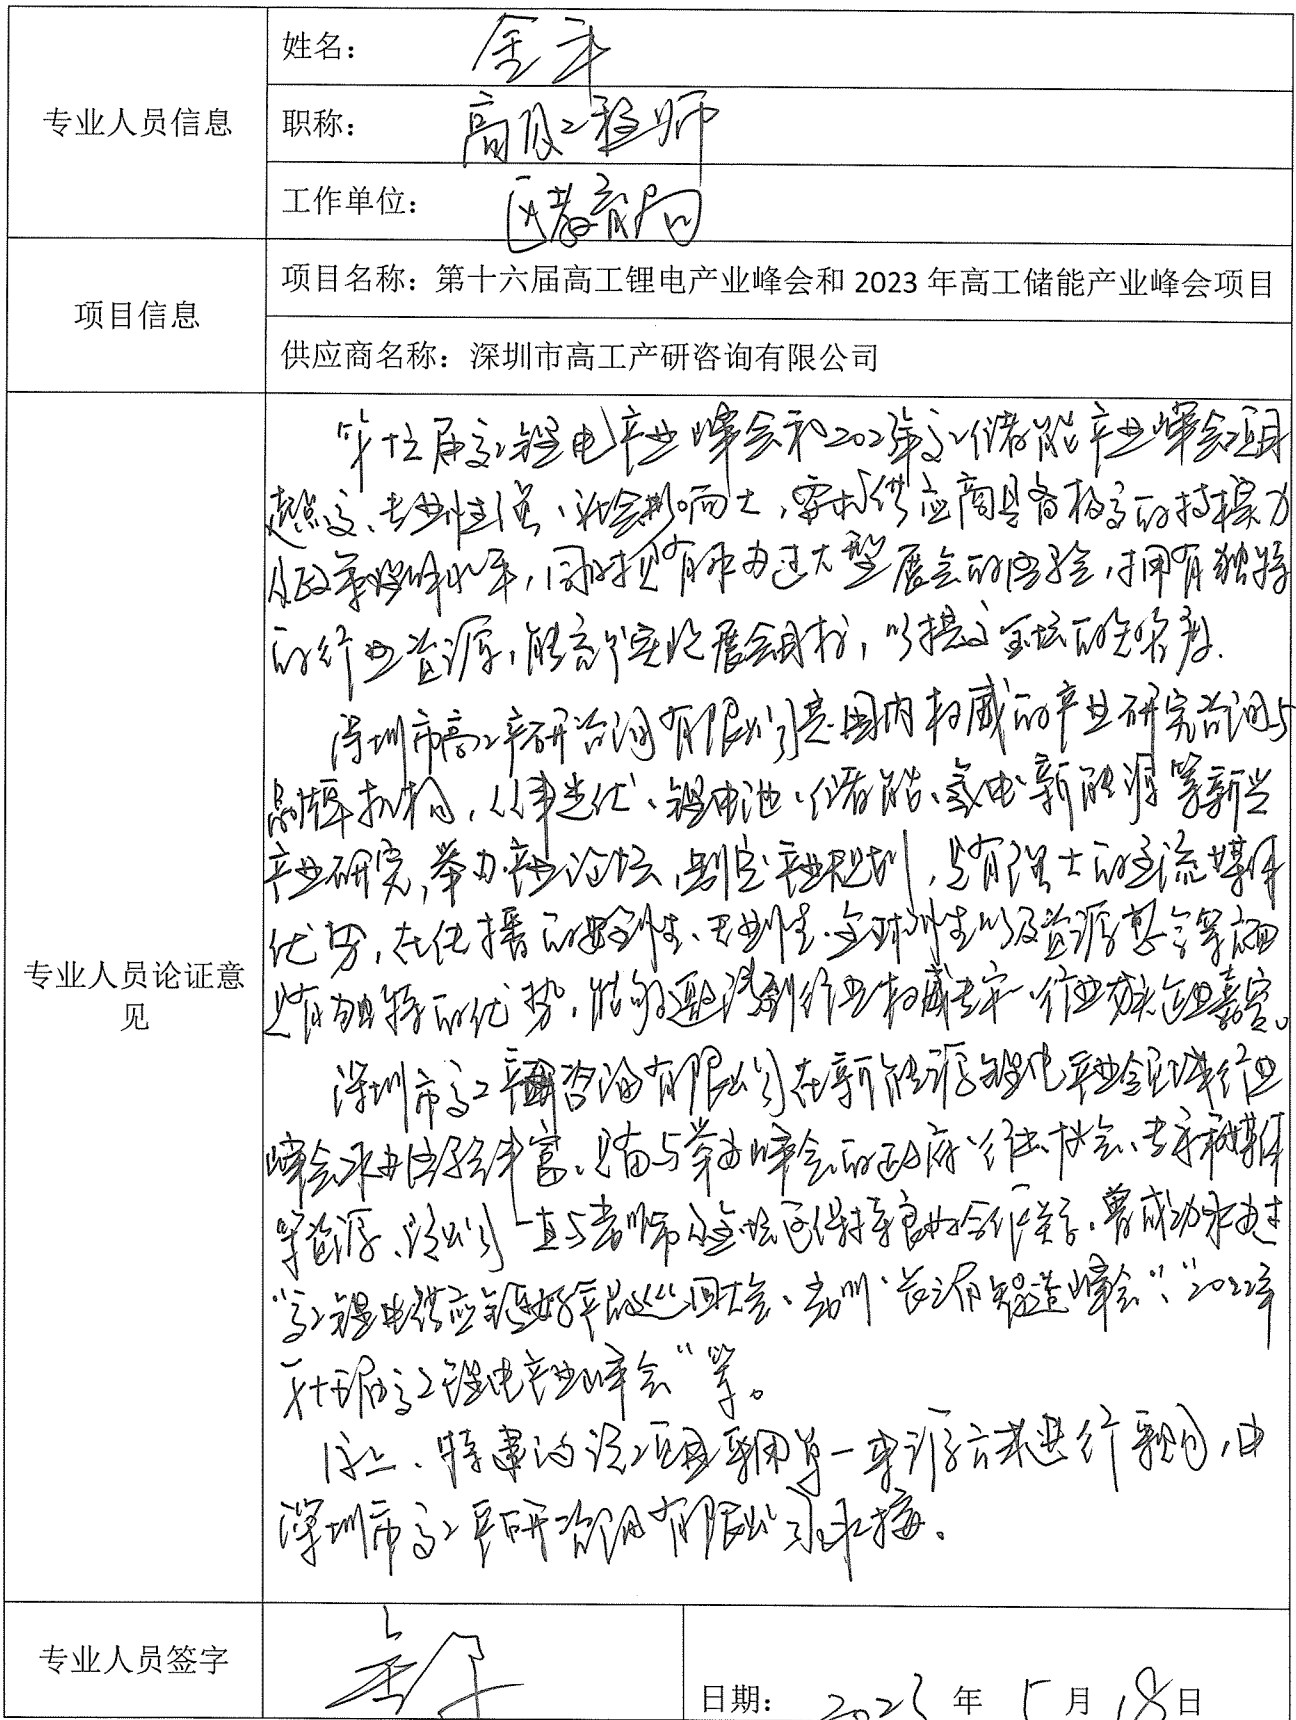 专业人员信息
姓名：金
职称：高级工程师
工作单位：区教育局
项目信息
项目名称：第十六届高工锂电产业峰会和 2023 年高工储能产业峰会项目
供应商名称：深圳市高工产研咨询有限公司
专业人员论证意见
第十六届高工锂电产业峰会和2023年高工储能产业峰会项目
起点高、专业性强、社会影响大，要求供应商具备极高的持续力
及政策解读水平，同时损有承办过大型展会的经验，拥有独特
的行业资源，能高效实现展会目标，以提高金坛的知名度.
深圳市高工产研咨询有限公司是国内权威的产业研究咨询与
品牌机构，从事光伏、锂电池、储能、氢电、新能源等新兴
产业研究，举办产业论坛，制定产业规划，具有强大的主流媒体
优势，在传播的专业性、全球性以及资源整合等方面
具有独特的优势，能够邀请到行业权威专家、行业龙头企业嘉宾。
深圳市高工产研咨询有限公司在新能源锂电产业领域行业
峰会承办经验丰富、具备与举办峰会的政府、行业协会、专家和媒体
等资源、该公司一直与常州市及金坛区保持良好合作关系，曾成功承办过
“高工锂电供应链好产品巡回大会、常州“长三角智造峰会”、“2022年
第十五届高工锂电产业峰会”等。
综上、特建议该项目采用单一来源方式进行采购，由
深圳市高工产研咨询有限公司承接。
专业人员签字
金
日期：2023 年 5 月 18 日